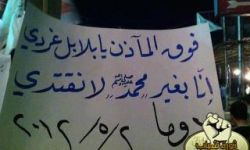 فوق المآذن يا بلابل غردي
إنا بغير محمد ﷺ لا نقتدي
دوما ٢ / ٥ / ٢٠١٢